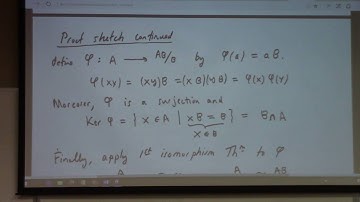 Proof sketch continued
define φ : A → AB/B by φ(a) = aB.
φ(xy) = (xy)B = (xB)(yB) = φ(x) φ(y)
Moreover, φ is a surjection and
Ker φ = { x ∈ A | xB = B } = B ∩ A
x ∈ B
Finally, apply 1st isomorphism Thm to φ
A A AB